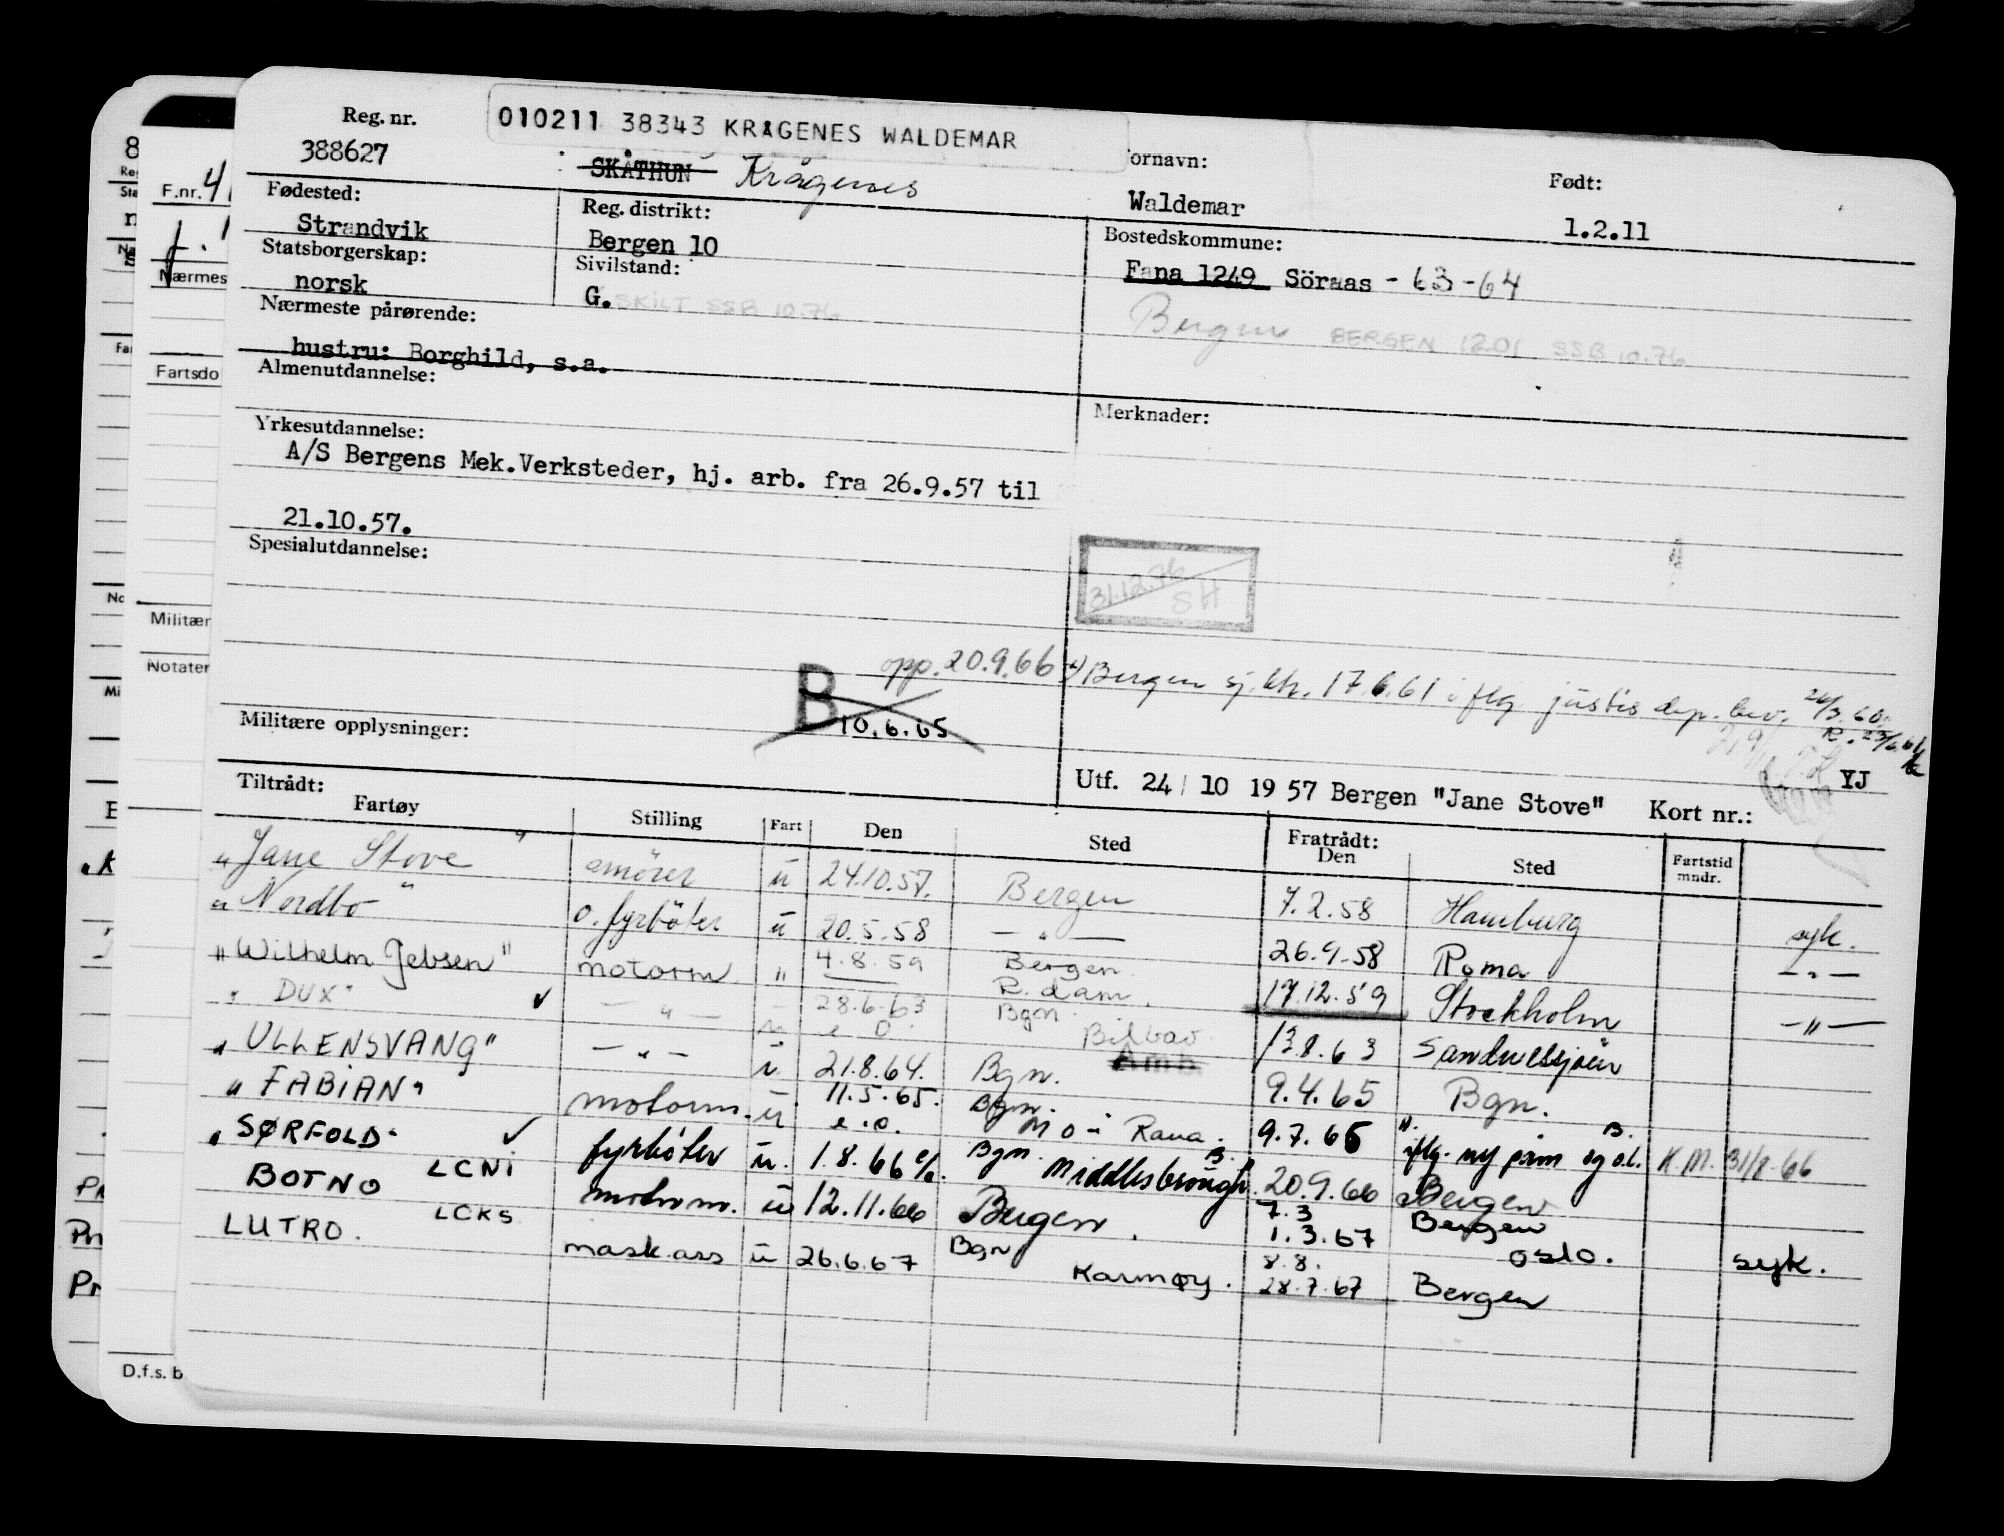 010211 38343 KRÅGENES WALDEMAR
Reg. nr.
388627
SKÅTHUN Krågenes
ornavn:
Waldemar
Født:
1.2.11
Fødested:
Strandvik
Reg. distrikt:
Bergen 10
Bostedskommune:
Fana 1249 Söraas - 63-64
Statsborgerskap:
norsk
Sivilstand:
G. SKILT SSB 10.76
Bergen BERGEN 1201 SSB 10.76
Nærmeste pårørende:
hustru: Borghild, s.a.
Almenutdannelse:
Merknader:
Yrkesutdannelse:
A/S Bergens Mek.Verksteder, hj. arb. fra 26.9.57 til
21.10.57.
Spesialutdannelse:
31.12.76
SH
opp. 20.9.66
Bergen sj. 17.6.61 iflg justis dep. bev.
B
10.6.65
Militære opplysninger:
Utf. 24/10 1957 Bergen "Jane Stove" Kort nr.: YJ
Tiltrådt:
Fartøy Stilling Fart Den Sted Fratrådt: Den Sted Fartstid mndr.
"Jane Stove" smörer u 24.10.57. Bergen 7.2.58 Hamburg syk.
"Nordbo" o. fyrböter u 20.5.58 — " — 26.9.58 Roma — " —
"Wilhelm Jebsen" motorm. " 4.8.59 Bergen R.dam. 17.12.59 Stockholm — " —
"DUX" — " — 28.6.63 Bgn. Bilbao 13.8.63 Sandnessjøen
"ULLENSVANG" — " — u 21.8.64. Bgn. Amb. 9.4.65 Bgn.
"FABIAN" motorm. u 11.5.65. Bgn. Mo i Rana. 9.7.65 "
e.o.
"SØRFOLD" fyrböter u. 1.8.66 Bgn. Middlesbrough. 20.9.66 Bergen
K.M. 31/8-66
BOTNO LCNI motorm. u 12.11.66 Bergen. 7.3 1.3.67 Bergen Oslo. syk.
LUTRO. LCKS mask.ass u 26.6.67 Bgn Karmøy. 8.8. 28.7.67 Bergen
F.nr. 4
Nærmes
Fartsdo
Militær
Notater
D.f.s. b